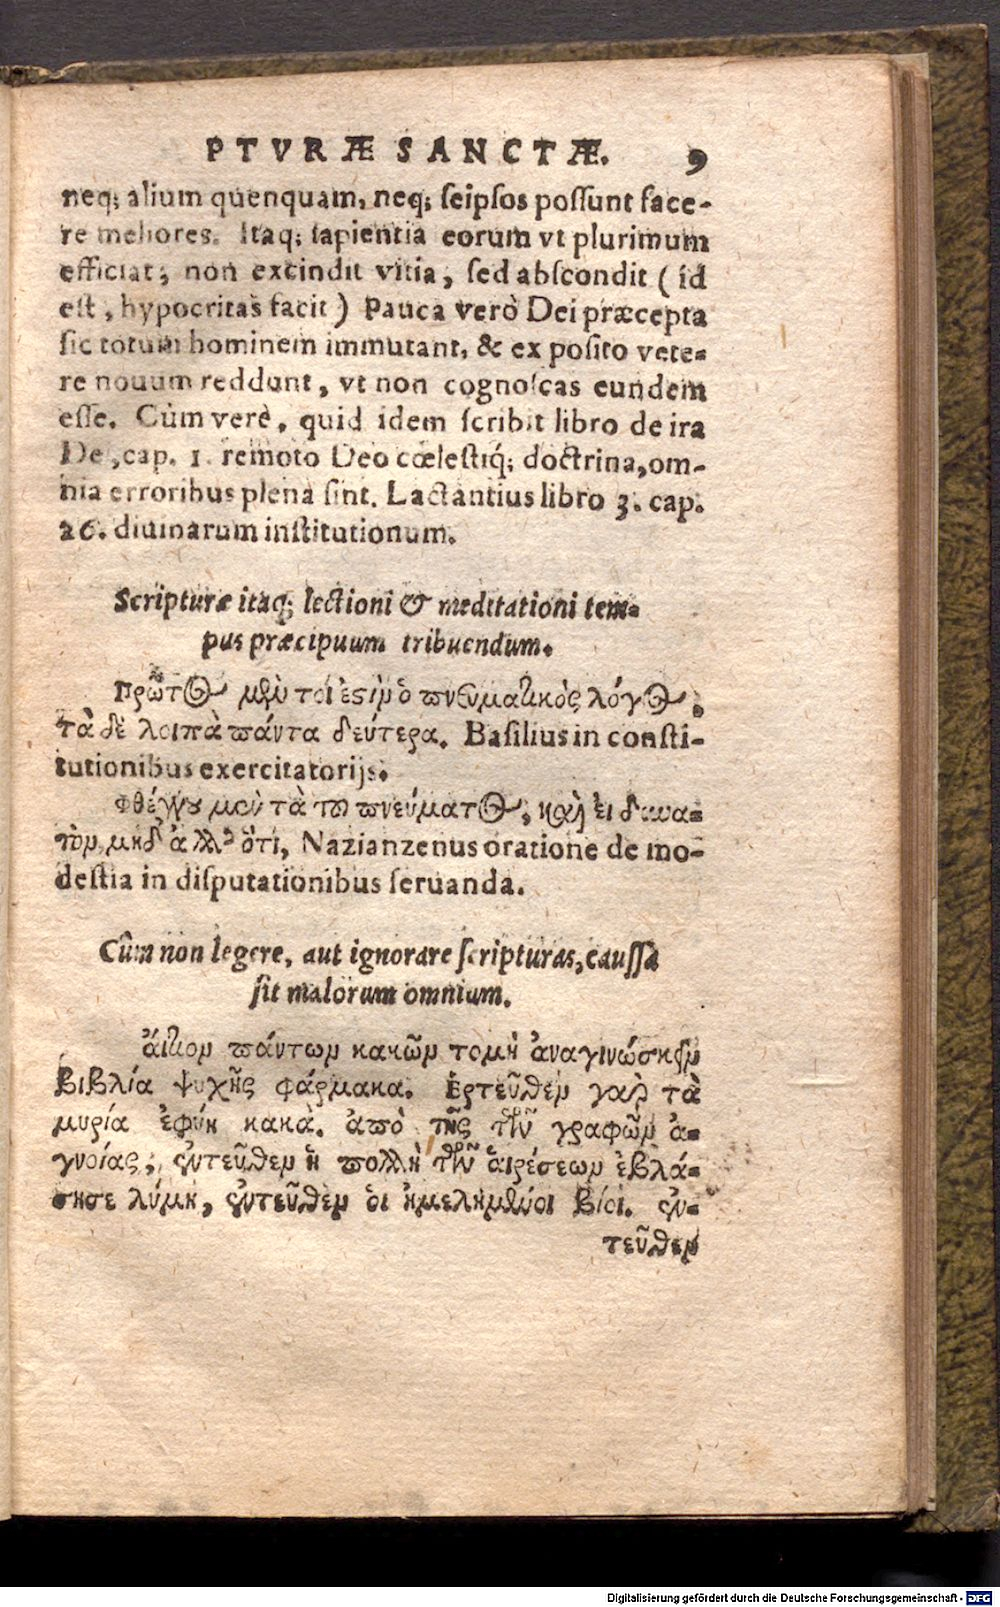 PTVRÆ SANCTÆ. 9
neq; alium quenquam, neq; ſeipſos poſſunt face-
re meliores. Itaq; ſapientia eorum vt plurimum
efficiat; non excindit vitia, ſed abſcondit (id
eſt, hypocritas facit) Pauca verò Dei præcepta
ſic totum hominem immutant, & ex poſito vete-
re nouum reddunt, vt non cognoſcas eundem
eſſe. Cùm verè, quid idem ſcribit libro de ira
De,cap. 1. remoto Deo cœleſtiq́; doctrina,om-
nia erroribus plena ſint. Lactantius libro 3. cap.
26. diuinarum inſtitutionum.
Scripturæ itaq; lectioni & meditationi tem-
pus præcipuum tribuendum.
Πρῶτος μὲν τοι ἐστὶν ὁ πνευματικὸς λόγος,
τὰ δὲ λοιπὰ πάντα δεύτερα. Baſilius in conſti-
tutionibus exercitatorijs.
Φθέγγου μὲν τὰ τοῦ πνεύματος, καὶ εἰ δυνα-
τὸν, μηδὲν ἄλλο ὅτι, Nazianzenus oratione de mo-
deſtia in diſputationibus ſeruanda.
Cûm non legere, aut ignorare ſcripturas,cauſſa
ſit malorum omnium.
ἄιτιον πάντων κακῶν τομὴ ἀναγινώσκειν
βιβλία ψυχῆς φάρμακα. Ἐρτεῦθεν γὰρ τὰ
μυρία ἐφύη κακὰ. ἀπὸ τῆς τῶν γραφῶν ἀ-
γνοίας, ἐντεῦθεν ἡ πολλὴ τῶν ἁιρέσεων ἐβλά-
στησε λύμη, ἐντεῦθεν ὁι ἠμελημένοι βίοι. ἐν-
τεῦθεν
Digitalisierung gefördert durch die Deutsche Forschungsgemeinschaft - DFG